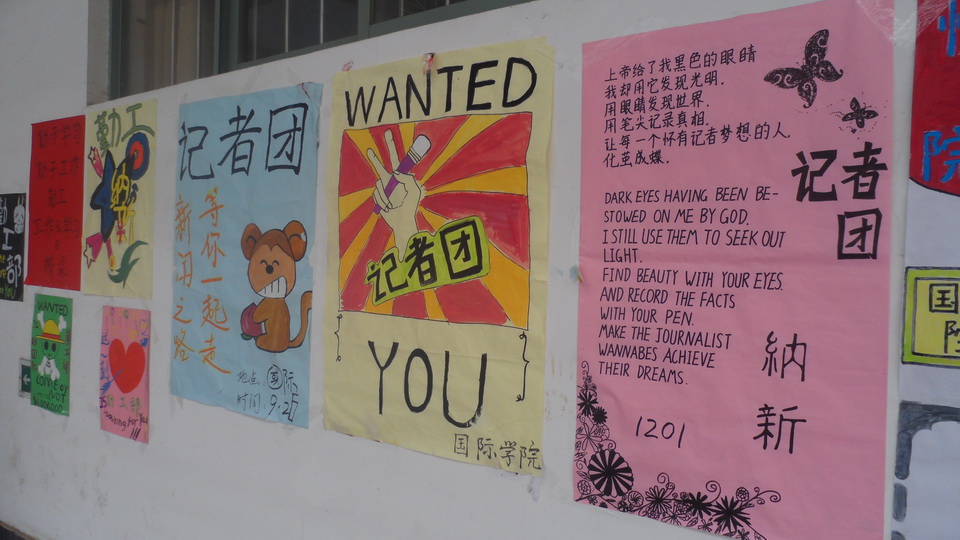 勤工
纳
新
WANTED
记者团
等你一起走
新闻之路
地点:国际
时间:9.26
WANTED
记者团
YOU
国际学院
上帝给了我黑色的眼睛
我却用它发现光明.
用眼睛发现世界.
用笔尖记录真相.
让每一个怀有记者梦想的人.
化茧成蝶.
记者
团
DARK EYES HAVING BEEN BE-
STOWED ON ME BY GOD.
I STILL USE THEM TO SEEK OUT
LIGHT.
FIND BEAUTY WITH YOUR EYES.
AND RECORD THE FACTS
WITH YOUR PEN.
MAKE THE JOURNALIST
WANNABES ACHIEVE
THEIR DREAMS.
纳
新
1201
院
国
际